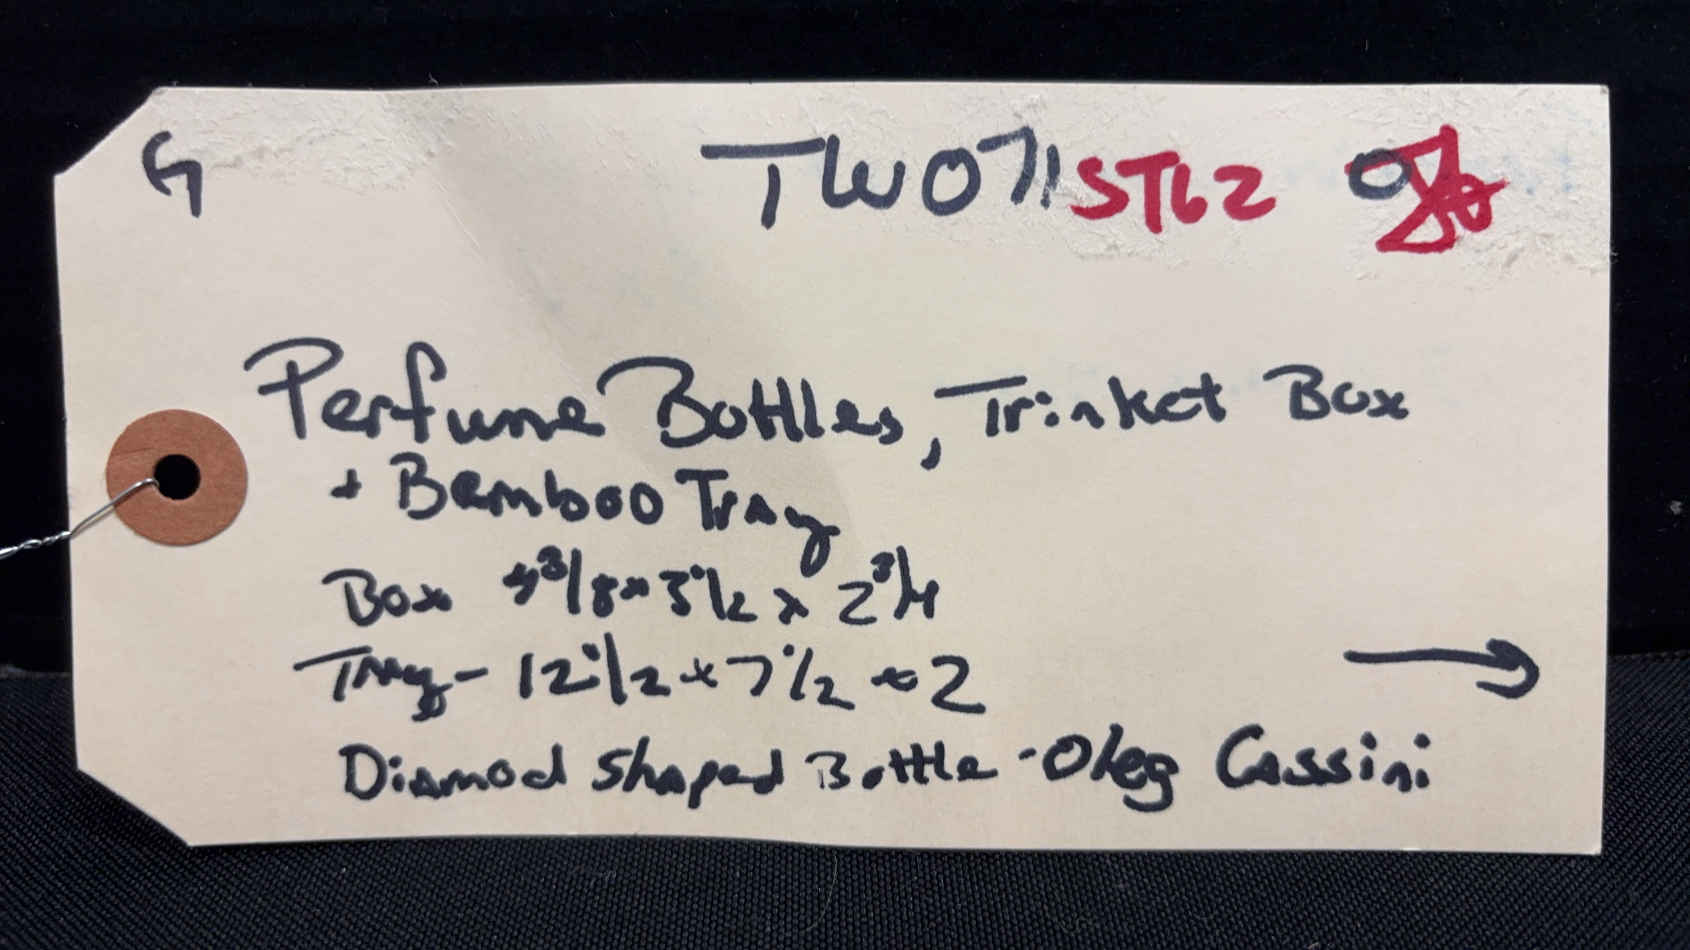 G TW071 ST62
Perfume Bottles, Trinket Box
+ Bamboo Tray
Box 4 3/8 x 3 1/2 x 2 3/4
Tray - 12 1/2 x 7 1/2 x 2
Diamod Shaped Bottle - Oleg Cassini